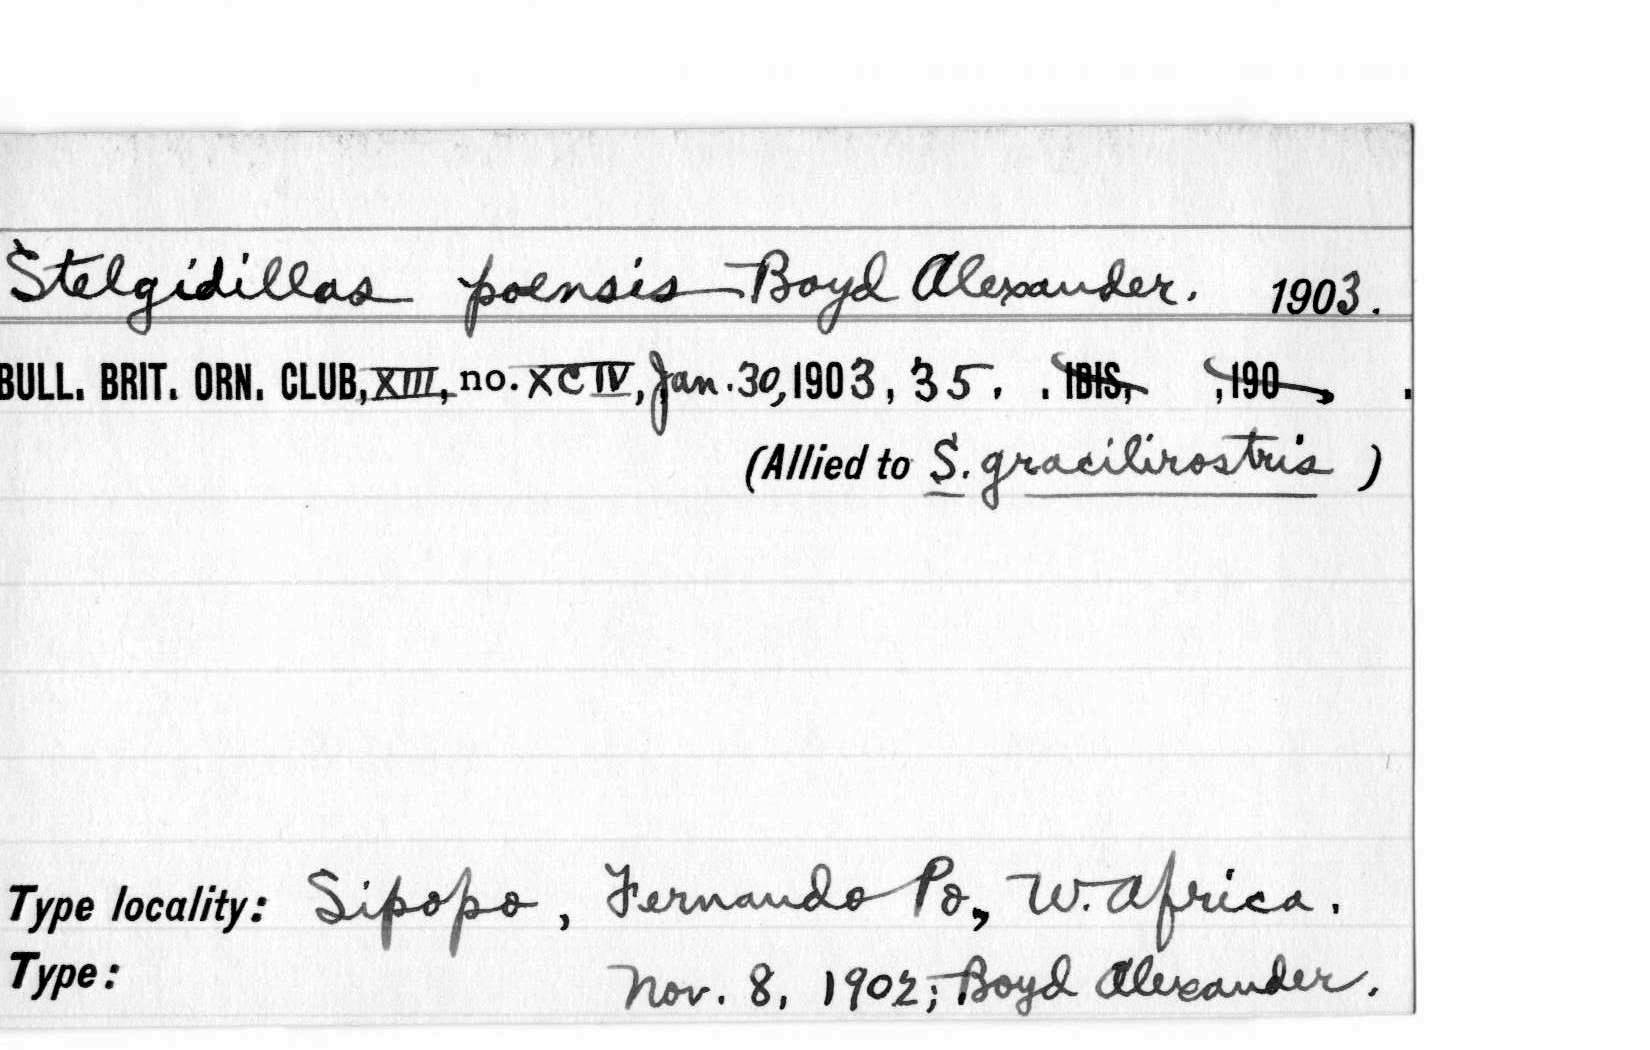 Stelgidillas poensis Boyd Alexander. 1903.
BULL. BRIT. ORN. CLUB, XIII, no. XCIV, Jan. 30, 1903, 35. . IBIS, , 190 .
(Allied to S. gracilirostris )
Type locality: Sipopo, Fernando Po, W. Africa.
Type: Nov. 8, 1902; Boyd Alexander.